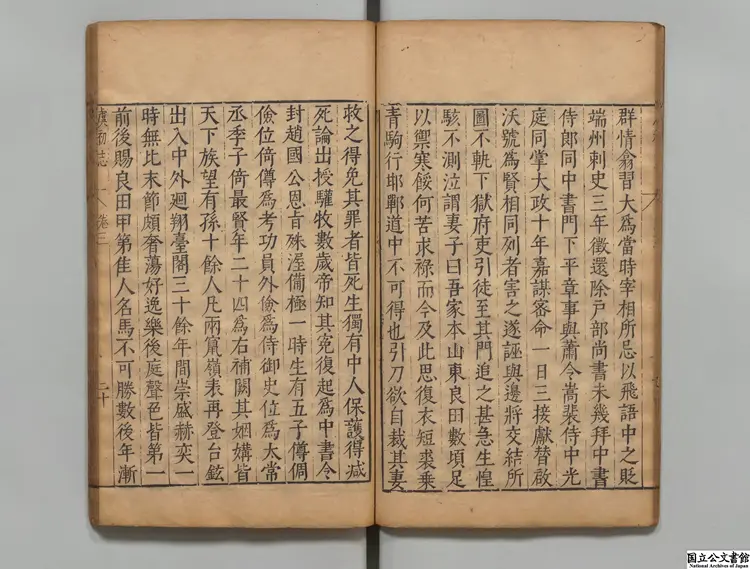 群情翕習大爲當時宰相所忌以飛語中之貶
端州刺史三年徵還除戸部尚書未幾拜中書
侍郎同中書門下平章事與蕭令嵩裴侍中光
庭同掌大政十年嘉謀密命一日三接獻替啟
沃號爲賢相同列者害之遂誣與邊將交結所
圖不軌下獄府吏引徒至其門追之甚急生惶
駭不測泣謂妻子曰吾家本山東良田數頃足
以禦寒餒何苦求祿而今及此思復衣短裘乗
青駒行邯鄲道中不可得也引刀欲自裁其妻
救之得免其罪者皆死生獨有中人保護得减
死論出授驩牧數歲帝知其寃復起爲中書令
封趙國公恩旨殊渥備極一時生有五子僔倜
儉位倚僔爲考功員外儉爲侍御史位爲太常
丞季子倚最賢年二十四爲右補闕其姻媾皆
天下族望有孫十餘人凡兩竄嶺表再登台鉉
出入中外廻翔臺閣三十餘年間崇盛赫奕一
時無比末節頗奢蕩好逸樂後庭聲色皆第一
前後賜良田甲第佳人名馬不可勝數後年漸
虞初志 卷三 二十
国立公文書館
National Archives of Japan